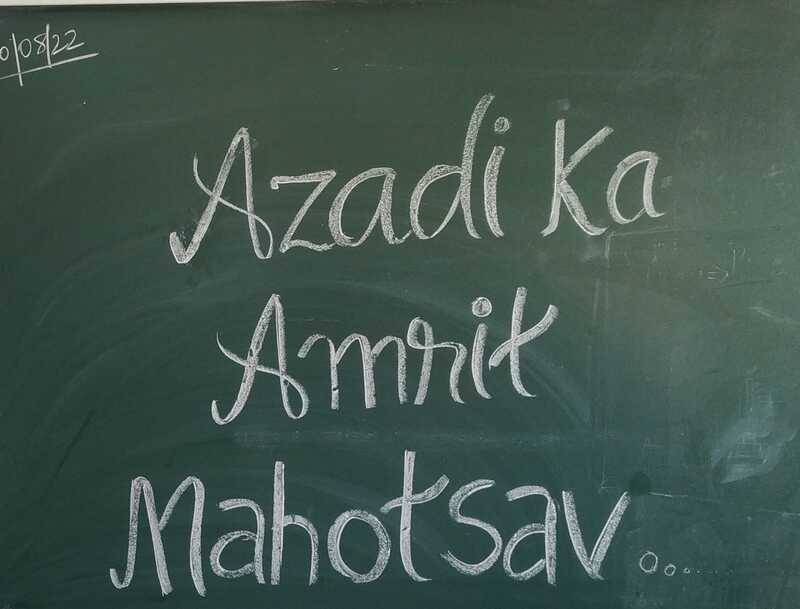 0/08/22
Azadi Ka
Amrit
Mahotsav...